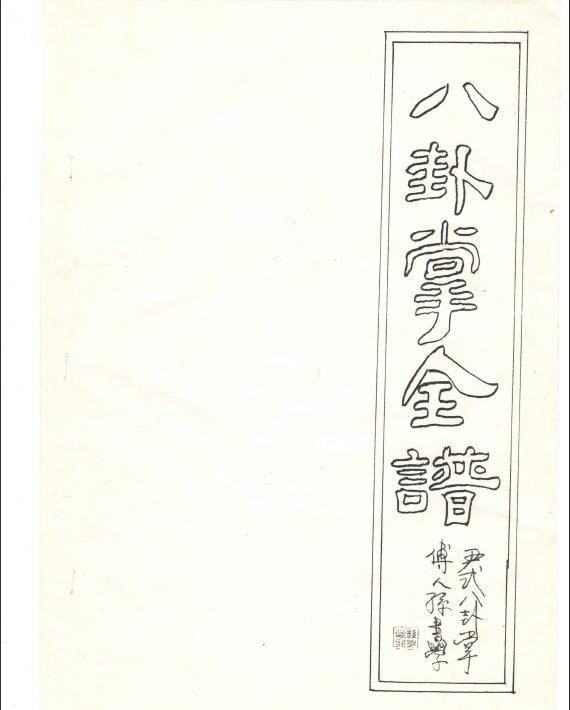 八卦掌全譜
尹式八卦掌
傅人孫書學